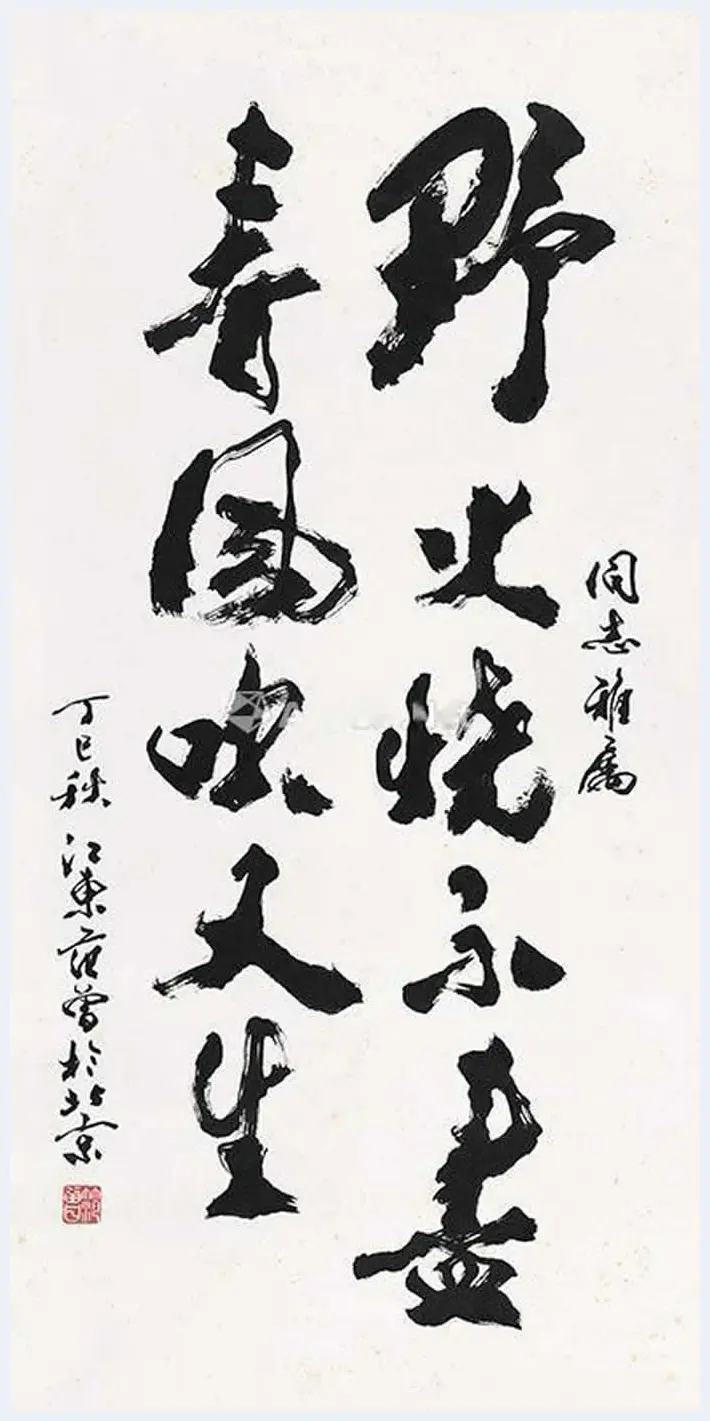 同志雅属
野火烧不尽
春风吹又生
丁巳秋江東范曾於北京